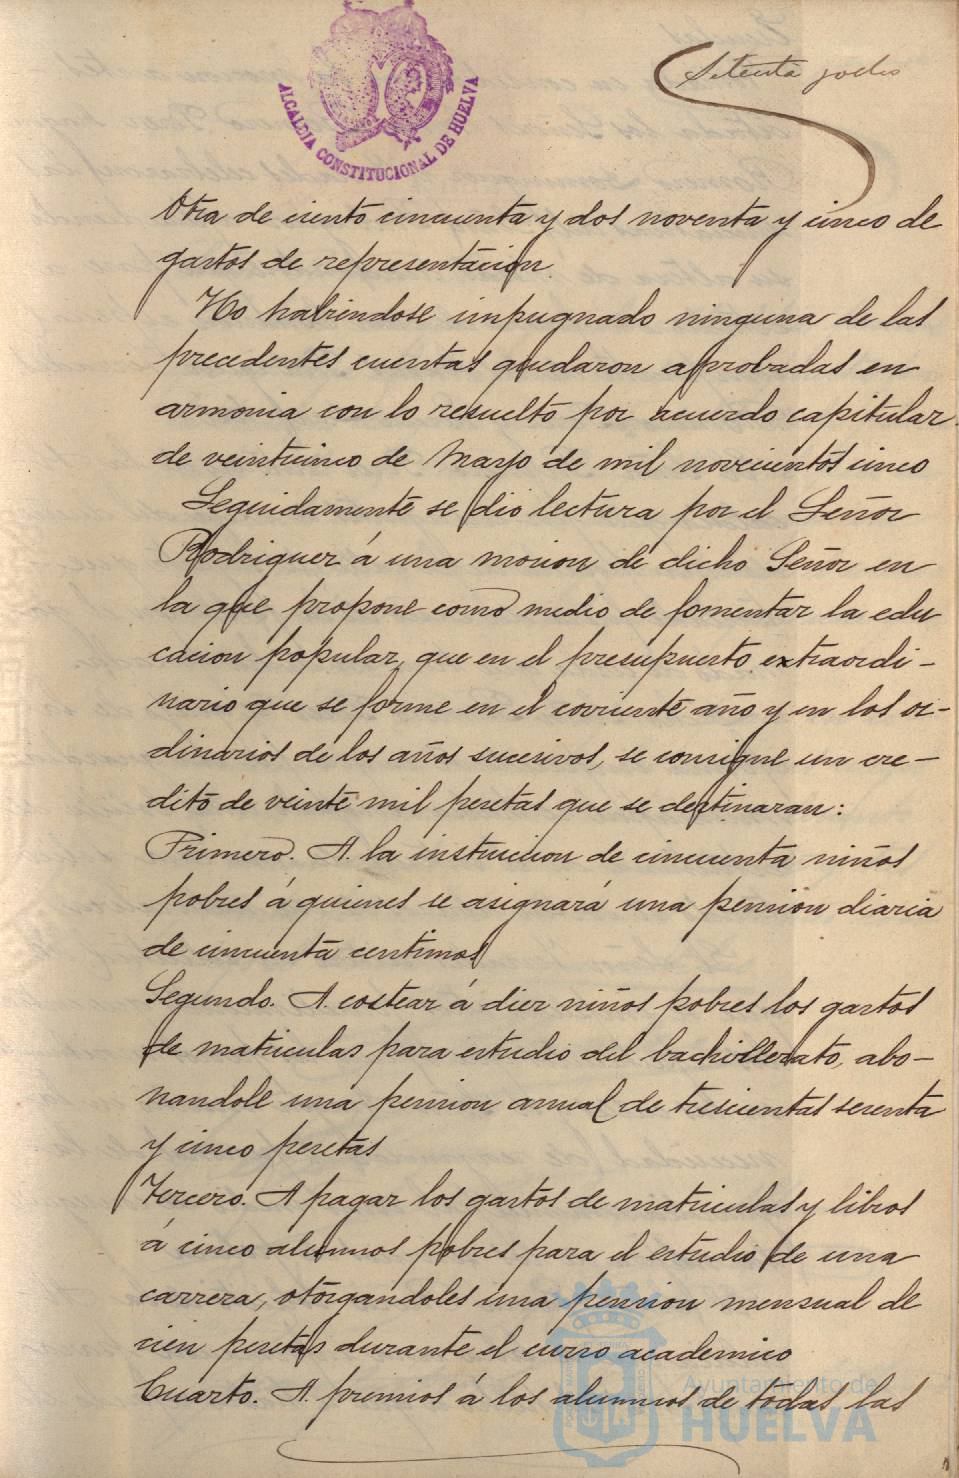 Setenta y ocho
ALCALDIA CONSTITUCIONAL DE HUELVA
Otra de ciento cincuenta y dos noventa y cinco de
gastos de representacion
No habiendose impugnado ninguna de las
precedentes cuentas quedaron aprobadas en
armonia con lo resuelto por acuerdo capitular
de veinticinco de Mayo de mil novecientos cinco
Seguidamente se dio lectura por el Señor
Rodriguez á una mocion de dicho Señor en
la que propone como medio de fomentar la edu
cacion popular, que en el presupuesto extraordi-
nario que se forme en el corriente año y en los or-
dinarios de los años sucesivos, se consigne un cre-
dito de veinte mil pesetas que se destinaran:
Primero. A la instrucion de cincuenta niños
pobres á quienes se asignará una pension diaria
de cincuenta centimos
Segundo. A costear á diez niños pobres los gastos
de matriculas para estudio del bachillerato, abo-
nandole una pension anual de trescientas sesenta
y cinco pesetas
Tercero. A pagar los gastos de matriculas y libros
á cinco alumnos pobres para el estudio de una
carrera, otorgandoles una pension mensual de
cien pesetas durante el curso academico
Cuarto. A premios á los alumnos de todas las
Ayuntamiento de
HUELVA